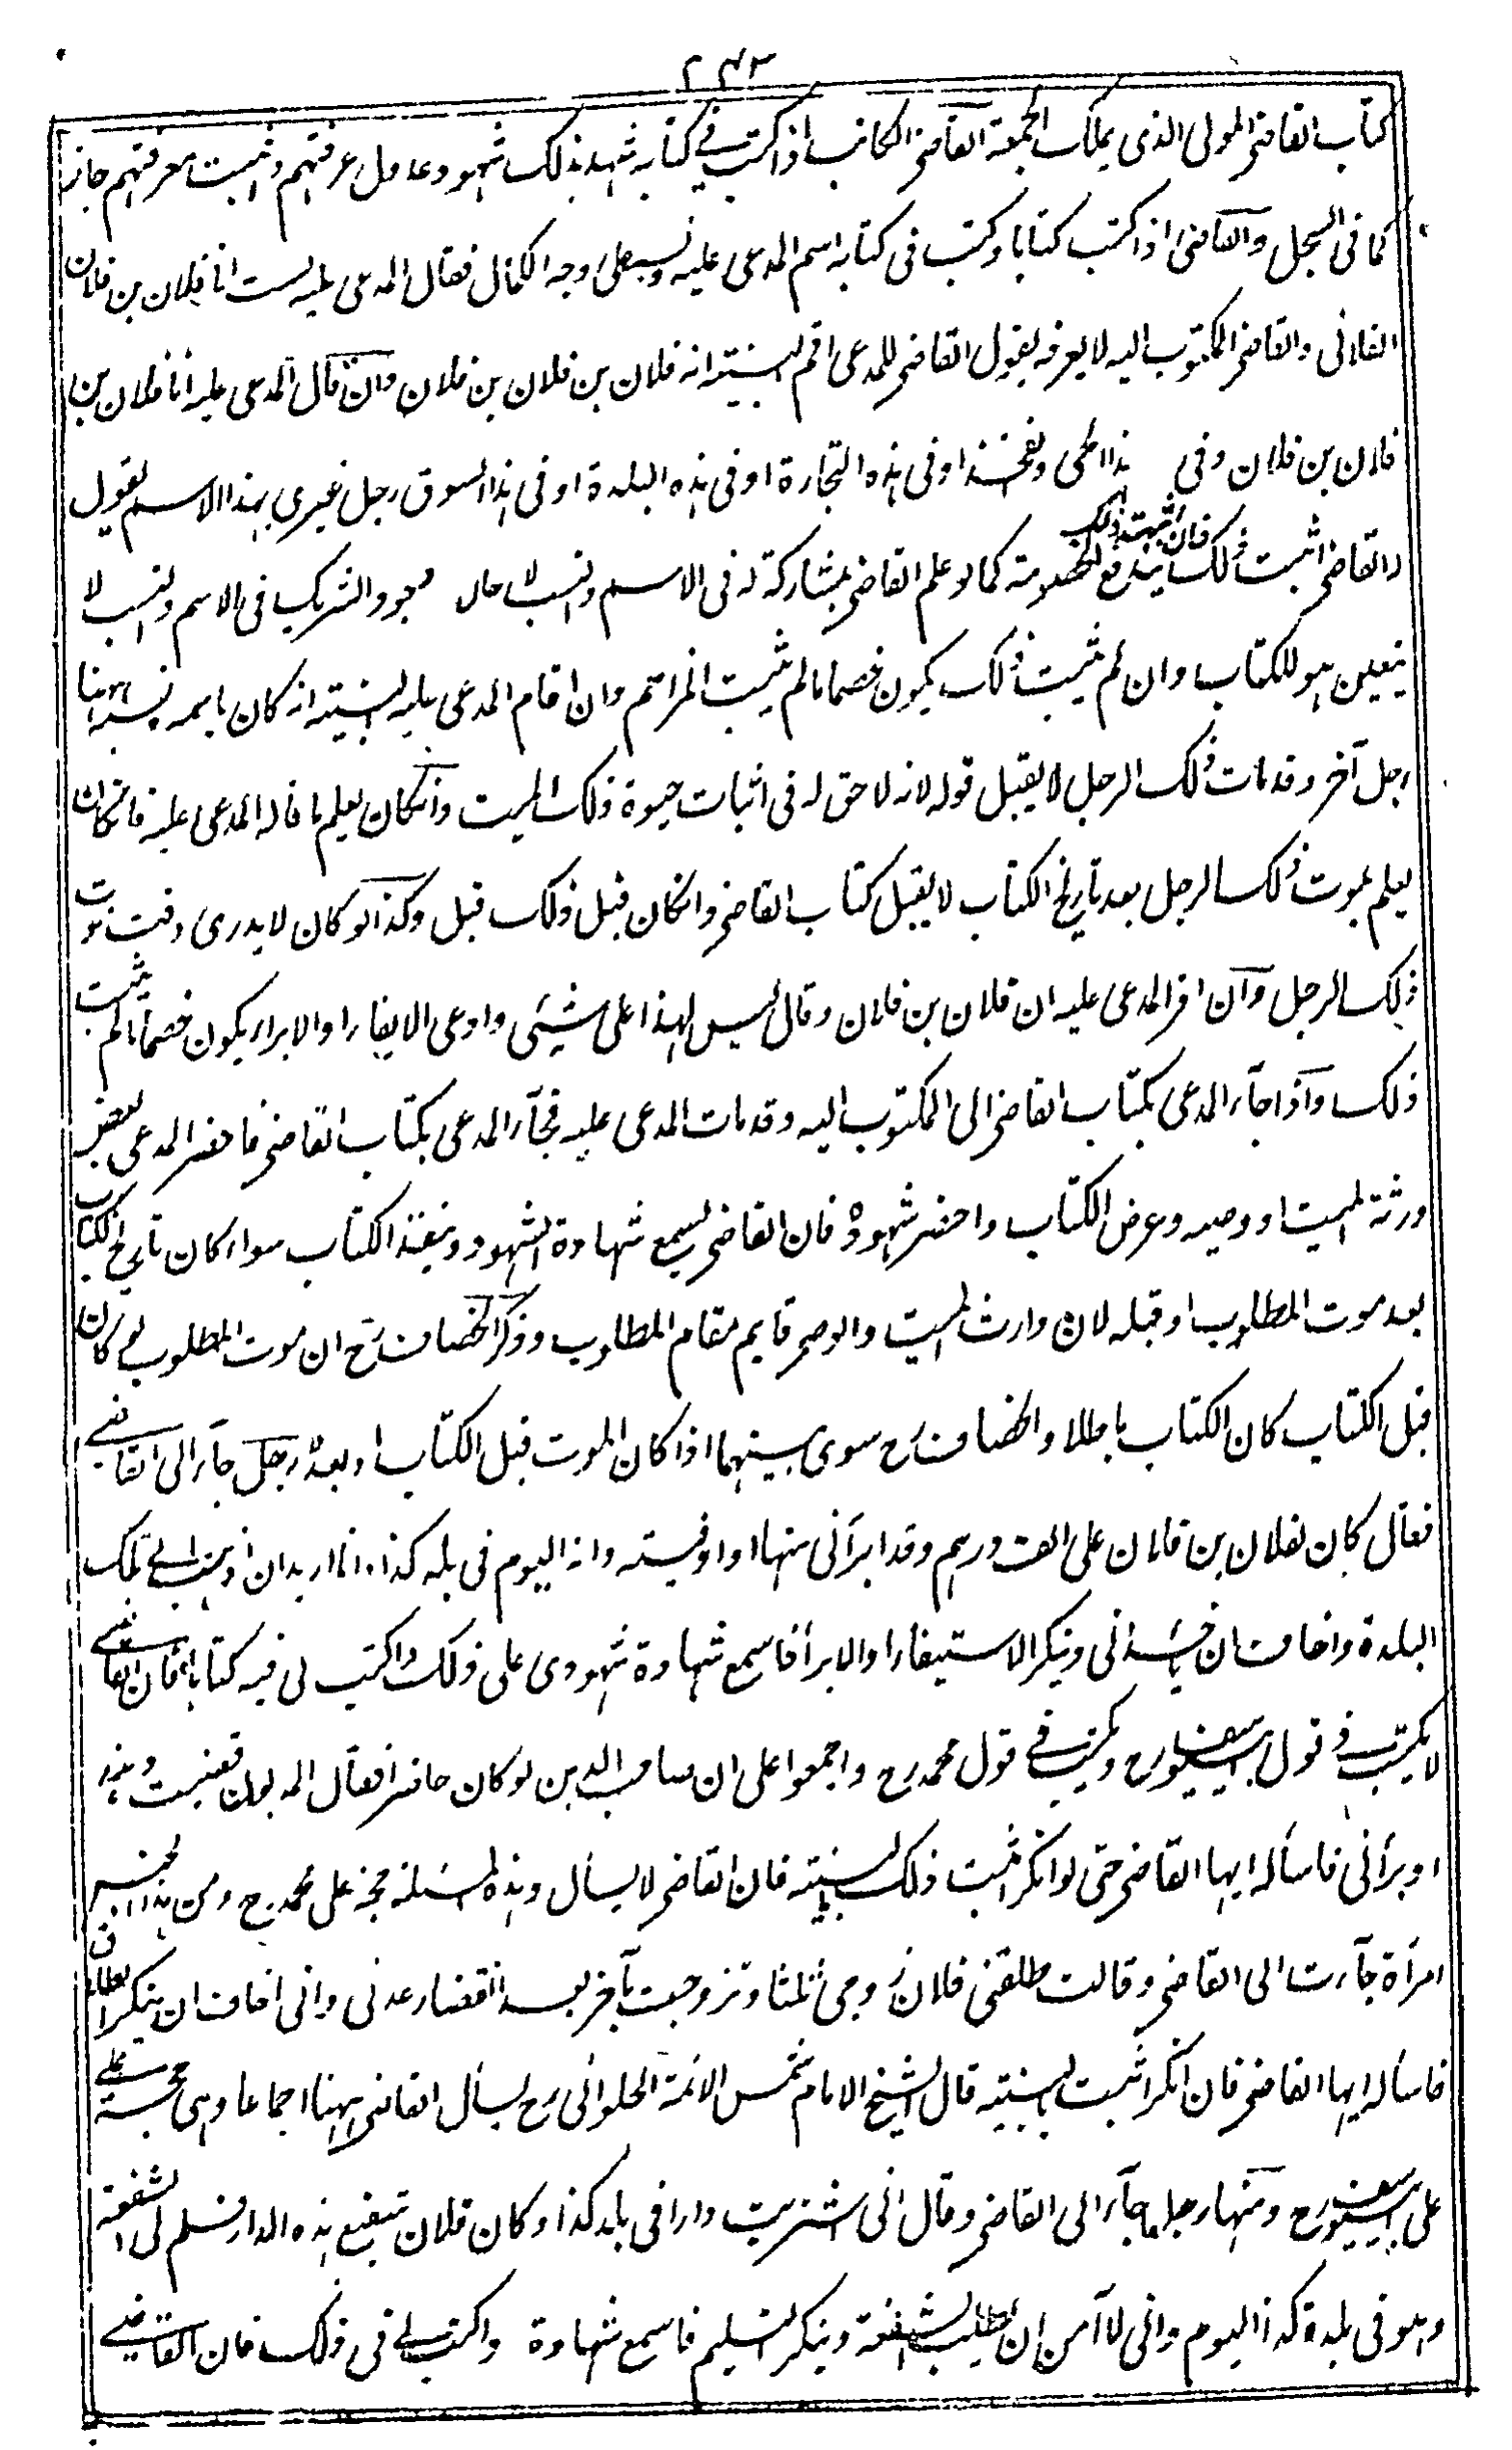 ٢٤٣
كتاب القاضى المولى الذى يملك الجمعة القاضى الكاتب اذا كتب فى كتابه شهد بذلك شهود عدول عرفتهم واثبت معرفتهم جاز
كما فى السجل والقاضى اذا كتب كتابا وكتب فى كتابه اسم المدعى عليه ونسبه على وجه الكمال فقال المدعى عليه لست انا فلان بن فلان
الفلانى والقاضى المكتوب اليه لا يعرفه يقول القاضى للمدعى اقم البينة انه فلان بن فلان بن فلان وان قال المدعى عليه انا فلان بن
فلان بن فلان وفى هذا الحى والفخذ او فى هذه التجارة او فى هذه البلدة او فى هذا السوق رجل غيرى بهذا الاسم يقول
له القاضى اثبت ذلك فان اثبت ذلك يندفع الخصومة كما لو علم القاضى بمشاركة له فى الاسم والنسب لا حال وجود الشريك فى الاسم والنسب لا
يتعين هو للكتاب وان لم يثبت ذلك يكون خصما مالم يثبت المزاحم وان اقام المدعى عليه البينة انه كان باسمه ونسبه ههنا
رجل آخر وقد مات ذلك الرجل لا يقبل قوله لانه لا حق له فى اثبات حيوة ذلك الميت وان كان يعلم ما قاله المدعى عليه فان كان
يعلم بموت ذلك الرجل بعد تاريخ الكتاب لا يقبل كتاب القاضى وان كان قبل ذلك قبل وكذا لو كان لا يدرى وقت موت
ذلك الرجل وان اقر المدعى عليه ان فلان بن فلان وقال ليس لهذا على شيئ وادعى الايفاء او الابراء يكون خصما مالم يثبت
ذلك واذا جاء المدعى بكتاب القاضى الى المكتوب اليه وقد مات المدعى عليه فجاء المدعى بكتاب القاضى فاحضر المدعى بعض
ورثة الميت او وصيه وعرض الكتاب واحضر شهوده فان القاضى يسمع شهادة الشهود وينفذ الكتاب سواء كان تاريخ الكتاب
بعد موت المطلوب او قبله لان وارث الميت والوصى قايم مقام المطلوب وذكر الخصاف رح ان موت المطلوب لو كان
قبل الكتاب كان الكتاب باطلا والخصاف رح سوى بينهما اذا كان الموت قبل الكتاب او بعده رجل جاء الى القاضى
فقال كان لفلان بن فلان على الف درهم وقد ابرأنى منها او اوفيته وانه اليوم فى بلد كذا وانا اريد ان اذهب الى تلك
البلدة واخاف ان ياخذنى وينكر الاستيفاء او الابرأ فاسمع شهادة شهودى على ذلك واكتب لى فيه كتابا فان القاضى
لا يكتب فى قول ابى يوسف رح ويكتب فى قول محمد رح واجمعوا على ان صاحب الدين لو كان حاضرا فقال المديون قضيت دينه
او برأنى فاسأله ايها القاضى حتى لو انكر اثبت ذلك بالبينة فان القاضى لا يسأل وهذه المسئلة حجة على محمد رح ومن هذا الجنس
امرأة جاءت الى القاضى وقالت طلقنى فلان زوجى ثلثا وتزوجت بآخر بعد انقضاء عدتى وانى اخاف ان ينكر الطلاق
فاسأله ايها القاضى فان انكر اثبت بالبينة قال الشيخ الامام شمس الائمة الحلوائى رح يسأل القاضى ههنا اجماعا وهى حجة على
على ابى يوسف رح ومنها رجل جاء الى القاضى وقال انى اشتريت دارا فى بلد كذا وكان فلان شفيع هذه الدار فسلم لى الشفعة
وهو فى بلدة كذا اليوم وانى لا آمن ان يطلب الشفعة وينكر التسليم فاسمع شهادة واكتب لى فى ذلك فان القاضى